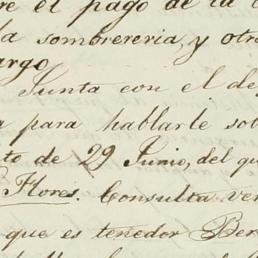 re el pago de la
la sombrereria, y otro
argo
Junta con el de
a para hablarle sob
to de 29 Junio, del qu
Flores. Consulta ver
que es tenedor Ber